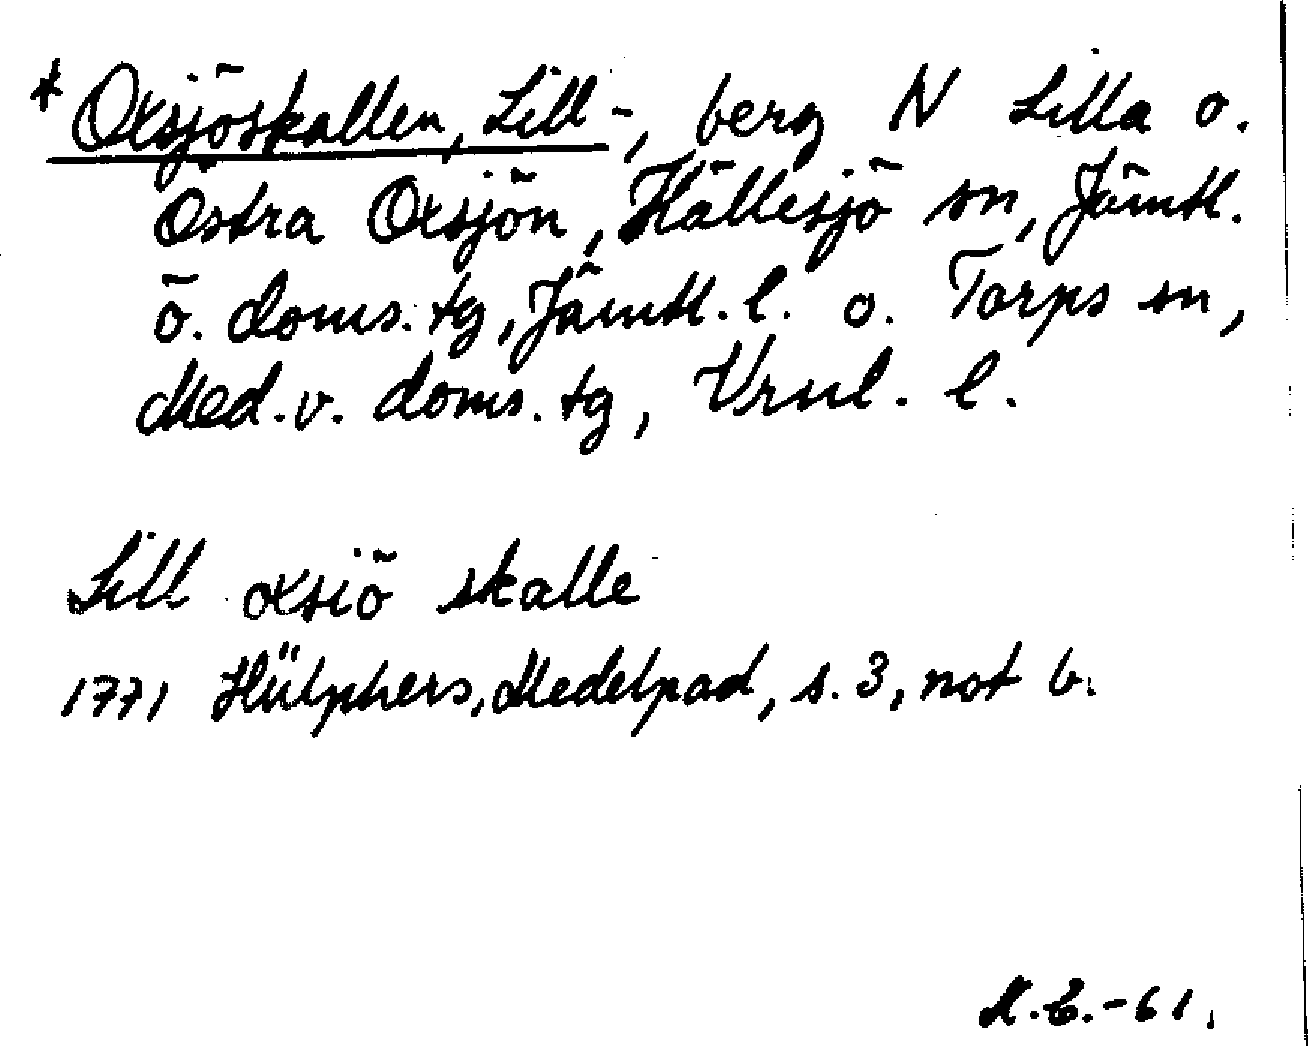 * Oxsjöskallen, Lill-, berg N Lilla o.
Östra Oxsjön, Hällesjö sn, Jämtl.
ö. doms. tg, Jämtl. l. o. Torps sn,
Med. v. doms. tg, Vrnl. l.
Lill oxsiö skalle
1771 Hülphers, Medelpad, s. 3, not b.
M.E.-61.